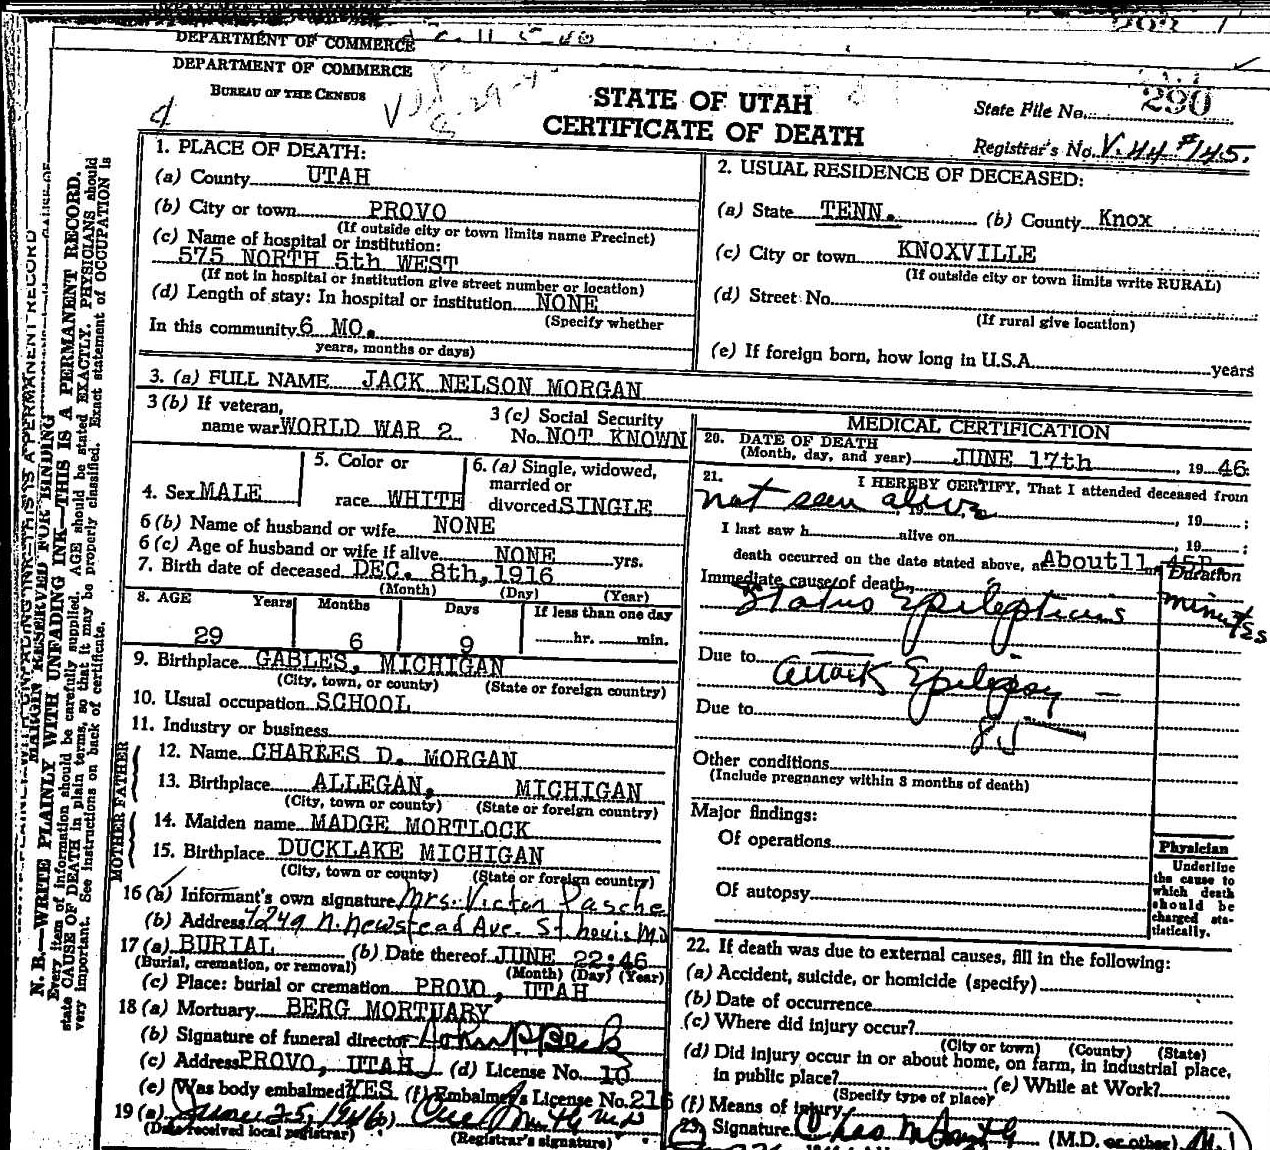 DEPARTMENT OF COMMERCE
DEPARTMENT OF COMMERCE
BUREAU OF THE CENSUS
STATE OF UTAH
CERTIFICATE OF DEATH
State File No. 290
Registrar's No. V.44 #145.
1. PLACE OF DEATH:
(a) County UTAH
(b) City or town PROVO
(If outside city or town limits name Precinct)
(c) Name of hospital or institution:
575 NORTH 5th WEST
(If not in hospital or institution give street number or location)
(d) Length of stay: In hospital or institution NONE
(Specify whether
In this community 6 MO.
years, months or days)
2. USUAL RESIDENCE OF DECEASED:
(a) State TENN. (b) County Knox
(c) City or town KNOXVILLE
(If outside city or town limits write RURAL)
(d) Street No.
(If rural give location)
(e) If foreign born, how long in U.S.A. years
3. (a) FULL NAME JACK NELSON MORGAN
3 (b) If veteran,
name war WORLD WAR 2
3 (c) Social Security
No. NOT KNOWN
4. Sex MALE
5. Color or
race WHITE
6. (a) Single, widowed,
married or
divorced SINGLE
6 (b) Name of husband or wife NONE
6 (c) Age of husband or wife if alive NONE yrs.
7. Birth date of deceased DEC. 8th, 1916
(Month) (Day) (Year)
8. AGE Years Months Days If less than one day
29 6 9 hr. min.
9. Birthplace GABLES, MICHIGAN
(City, town, or county) (State or foreign country)
10. Usual occupation SCHOOL
11. Industry or business
FATHER
12. Name CHARLES D. MORGAN
13. Birthplace ALLEGAN, MICHIGAN
(City, town or county) (State or foreign country)
MOTHER
14. Maiden name MADGE MORTLOCK
15. Birthplace DUCKLAKE MICHIGAN
(City, town or county) (State or foreign country)
16 (a) Informant's own signature Mrs. Victor Pasche
(b) Address 4249 N. Newstead Ave. St Louis Mo
17 (a) BURIAL (b) Date thereof JUNE 22:46
(Burial, cremation, or removal) (Month) (Day) (Year)
(c) Place: burial or cremation PROVO, UTAH
18 (a) Mortuary BERG MORTUARY
(b) Signature of funeral director
(c) Address PROVO, UTAH (d) License No. 10
(e) Was body embalmed YES (f) Embalmer's License No. 216
19 (a) June 25, 1946
(Date received local registrar) (Registrar's signature)
MEDICAL CERTIFICATION
20. DATE OF DEATH
(Month, day, and year) JUNE 17th, 19 46
21. I HEREBY CERTIFY, That I attended deceased from
not seen alive, 19 ;
I last saw h alive on , 19 ;
death occurred on the date stated above, at About 11 45P.
Duration
Immediate cause of death
Status Epilepticus minutes
Due to
attack Epilepsy —
Due to
85
Other conditions
(Include pregnancy within 3 months of death)
Major findings:
Of operations
Of autopsy
Physician
Underline
the cause to
which death
should be
charged sta-
tistically.
22. If death was due to external causes, fill in the following:
(a) Accident, suicide, or homicide (specify)
(b) Date of occurrence
(c) Where did injury occur?
(City or town) (County) (State)
(d) Did injury occur in or about home, on farm, in industrial place,
in public place? (e) While at Work?
(Specify type of place)
(f) Means of injury
23. Signature (M.D. or other)
MARGIN RESERVED FOR BINDING
N. B.—WRITE PLAINLY WITH UNFADING INK—THIS IS A PERMANENT RECORD.
Every item of information should be carefully supplied. AGE should be stated EXACTLY. PHYSICIANS should
state CAUSE OF DEATH in plain terms, so that it may be properly classified. Exact statement of OCCUPATION is
very important. See instructions on back of certificate.